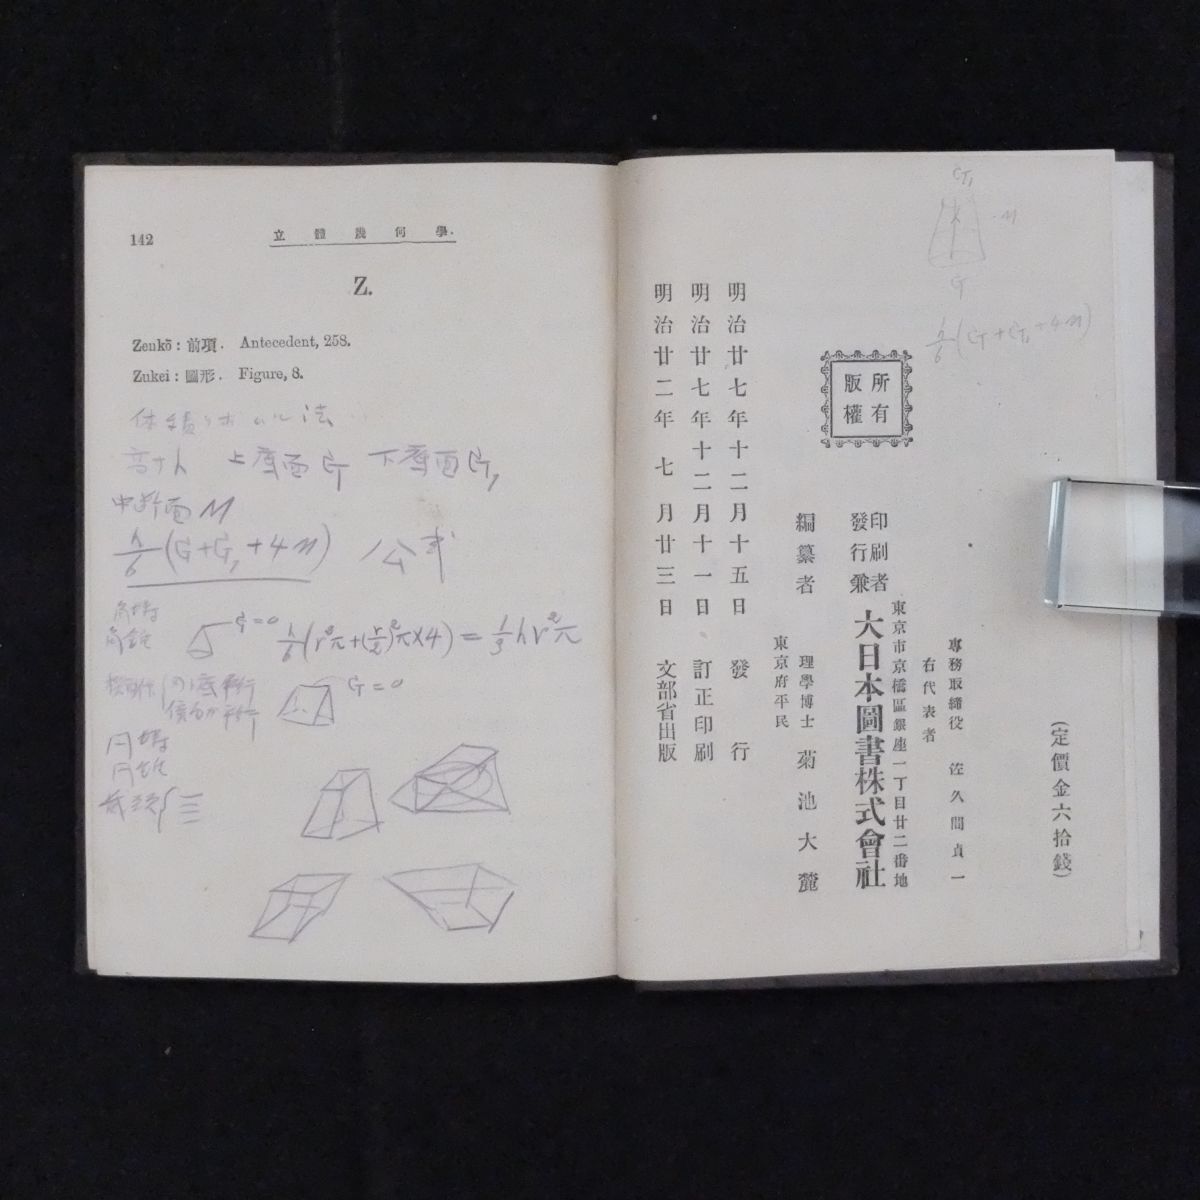 142
立體幾何學.
Z.
Zenkō: 前項. Antecedent, 258.
Zukei: 圖形. Figure, 8.
高サh 上底面G 下底面G₁
中断面M
h/6(G+G₁+4M) ノ公式
角錐
G=0 h/6(r²π+(r/2)²π×4)=1/3hr²π
G=0
円錐
G₁
M
G
h/6(G+G₁+4M)
所有
版權
(定價金六拾錢)
明治廿七年十二月十五日 發行
明治廿七年十二月十一日 訂正印刷
明治廿二年七月廿三日 文部省出版
編纂者 理學博士 菊池大麓
東京府平民
印刷者
發行兼
大日本圖書株式會社
東京市京橋區銀座一丁目廿二番地
右代表者
專務取締役 佐久間貞一